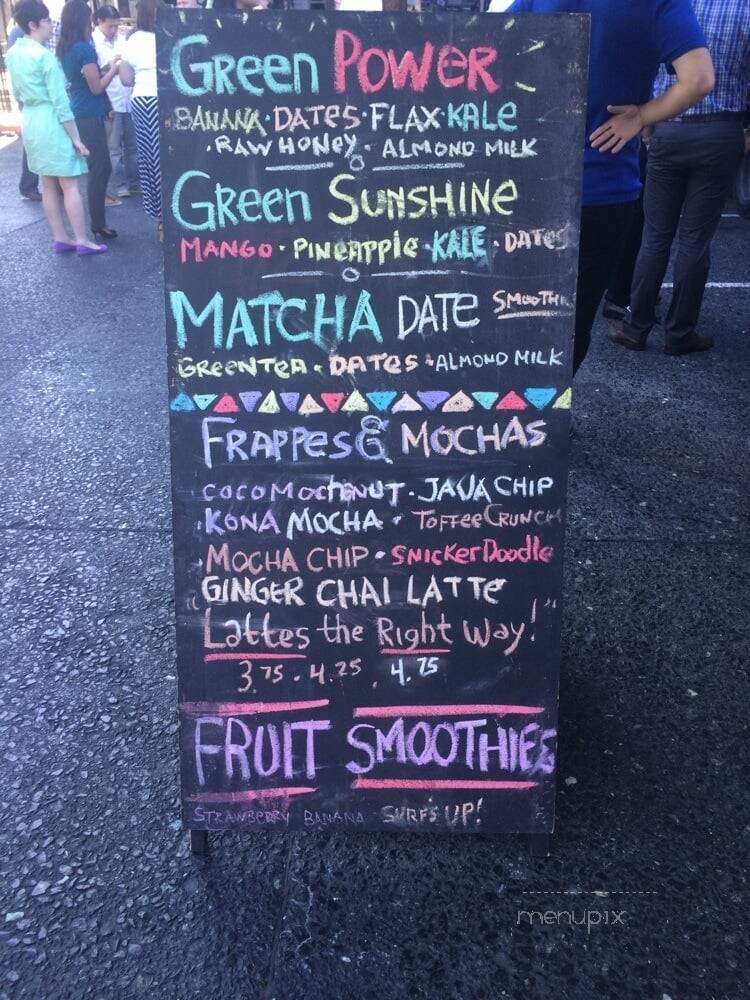 Green Power
BANANA · DATES · FLAX · KALE
· RAW HONEY · ALMOND MILK
Green SUNSHINE
MANGO · PINEAPPLE · KALE · DATES
MATCHA DATE SMOOTHI
GREEN TEA · DATES · ALMOND MILK
FRAPPES & MOCHAS
COCOMOCHANUT · JAVA CHIP
· KONA MOCHA · TOFFEE CRUNCH
· MOCHA CHIP · SNICKERDOODLE
GINGER CHAI LATTE
"Lattes the Right Way!"
3.75 · 4.25 . 4.75
FRUIT SMOOTHIES
STRAWBERRY BANANA SURF'S UP!
menupix